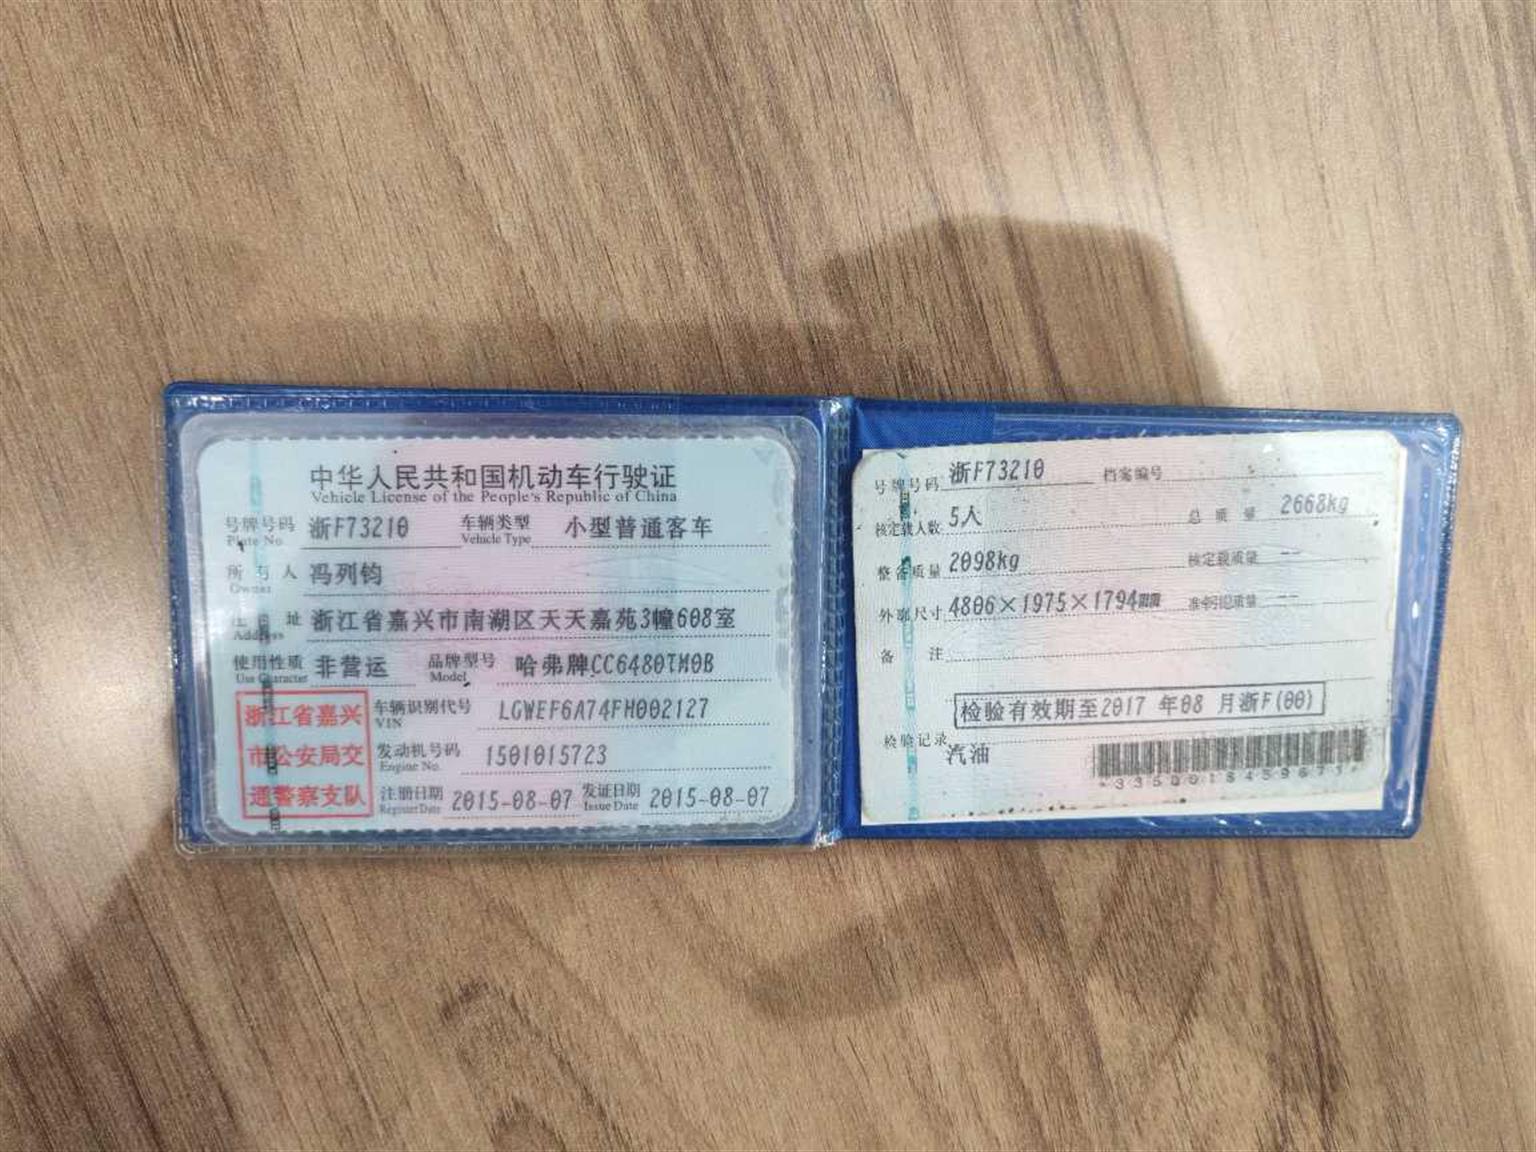 中华人民共和国机动车行驶证
Vehicle License of the People's Republic of China
号牌号码 浙F73210 车辆类型 小型普通客车
Plate No. Vehicle Type
所有人 冯列钧
Owner
住址 浙江省嘉兴市南湖区天天嘉苑3幢608室
Address
使用性质 非营运 品牌型号 哈弗牌CC6480TM0B
Use Character Model
浙江省嘉兴
市公安局交
通警察支队
车辆识别代号 LGWEF6A74FH002127
VIN
发动机号码 1501015723
Engine No.
注册日期 2015-08-07 发证日期 2015-08-07
Register Date Issue Date
号牌号码 浙F73210 档案编号
核定载人数 5人 总质量 2668kg
整备质量 2098kg 核定载质量 --
外廓尺寸 4806×1975×1794mm 准牵引总质量 --
备注
检验有效期至2017 年08 月浙F(00)
检验记录
汽油